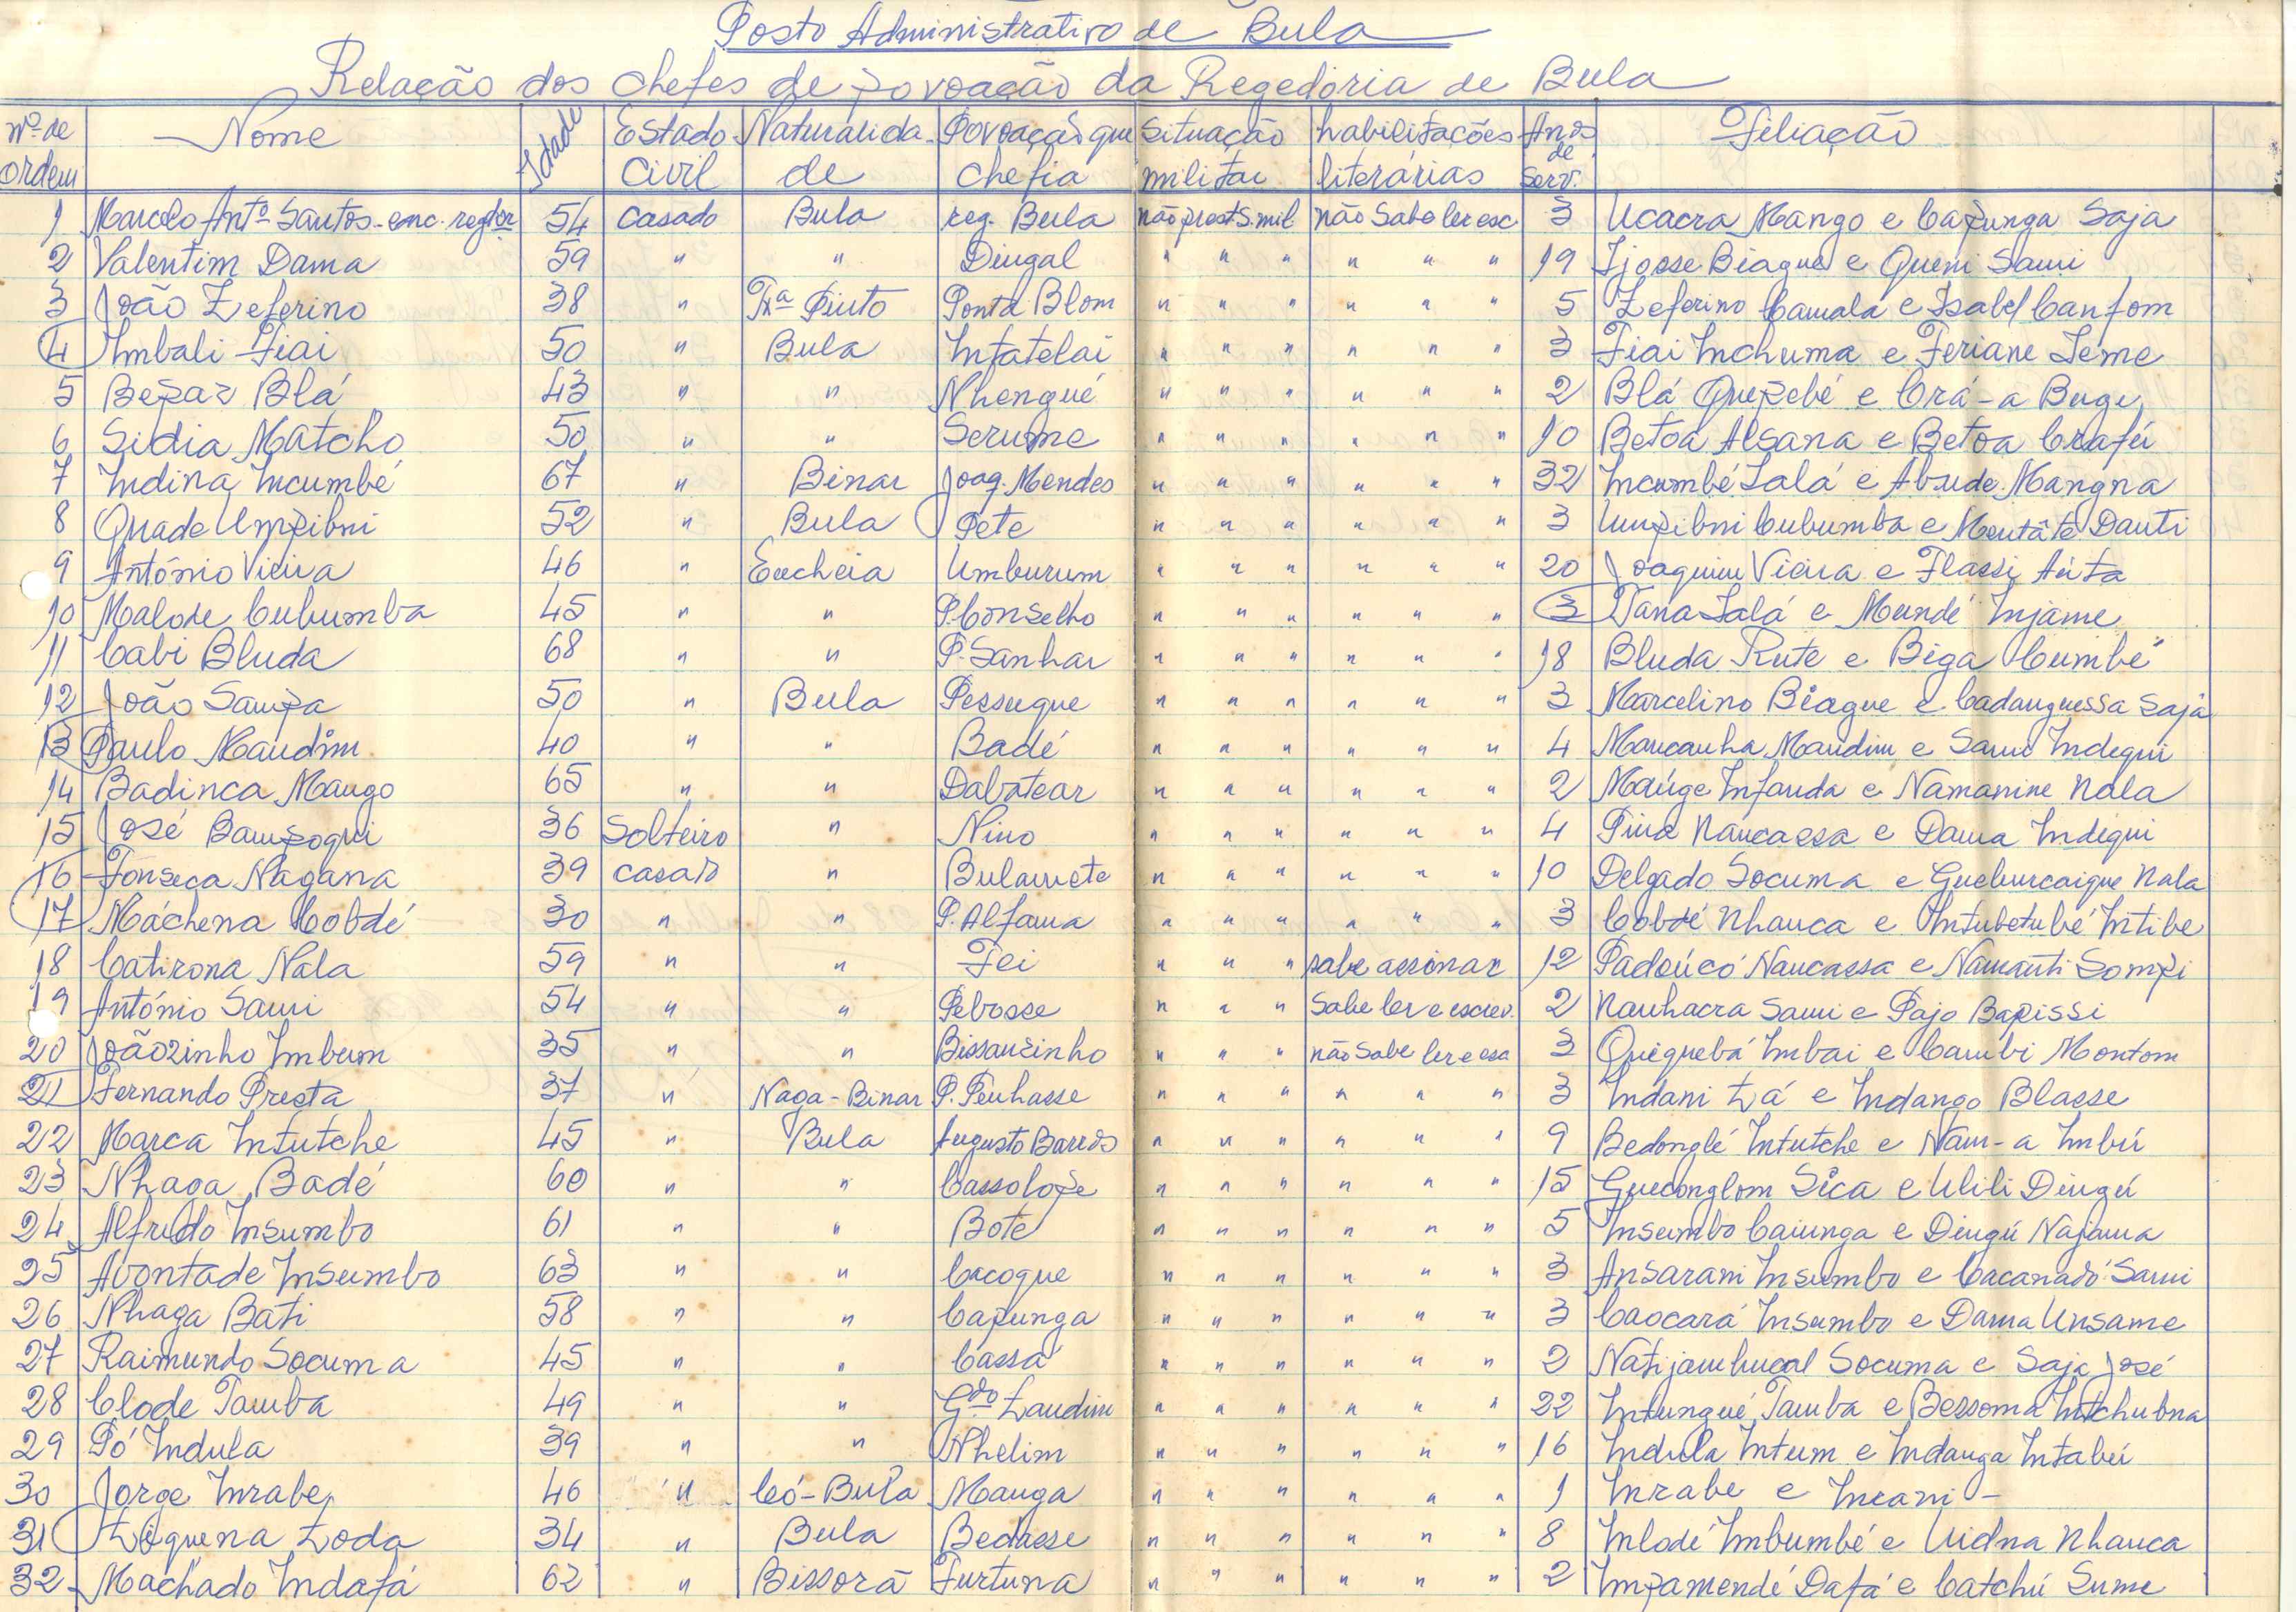 Posto Administrativo de Bula
Relação dos chefes de povoação da Regedoria de Bula
Nº de ordem Nome Idade Estado Civil Naturalidade Povoação que chefia Situação militar habilitações literárias Anos de serv. Filiação
1 Marcelo Antº Santos - enc. regdor 54 casado Bula reg. Bula não prest. S. mil não sabe ler esc 3 Ucacra Mango e Capunga Saja
2 Valentim Dama 59 " " Dingal " " " " " " 19 Ijosse Biague e Queni Sami
3 João Zeferino 38 " Txª Pinto Ponta Blom " " " " " " 5 Zeferino Camala e Isabel Canfom
4 Imbali Fiai 50 " Bula Infatelai " " " " " " 3 Fiai Inchuma e Feriane Teme
5 Bepar Blá 43 " " Nhengué " " " " " " 2 Blá Quepebé e Crá-a Buge
6 Sidia Matcho 50 " " Serume " " " " " " 10 Betoa Alsana e Betoa Crafú
7 Indina Incumbé 67 " Binar Joaq. Mendes " " " " " " 32 Incumbé Lalá e Abude Mangna
8 Quade Umpibni 52 " Bula Pete " " " " " " 3 Umpibni Cubumba e Mentâte Danti
9 António Vieira 46 " Encheia Umburum " " " " " " 20 Joaquim Vieira e Flassi Aúta
10 Malode Cubumba 45 " " P. Conselho " " " " " " 3 Tana Lalá e Mundé Injame
11 Cabi Bluda 68 " " P. Sanhar " " " " " " 18 Bluda Rute e Biga Cumbé
12 João Sampa 50 " Bula Pessugue " " " " " " 3 Marcelino Biague e Cadanguessa Sajá
13 Paulo Mandim 40 " " Badé " " " " " " 4 Mancanha Mandim e Sami Indequi
14 Badinca Mango 65 " " Dabatear " " " " " " 2 Maúge Infanda e Namanine Nala
15 José Bampoqui 36 Solteiro " Nino " " " " " " 4 Pina Nancassa e Dama Indiqui
16 Fonseca Nagana 39 casado " Bulamete " " " " " " 10 Delgado Socuma e Nala
17 Máchena Cobdé 30 " " P. Alfama " " " " " " 3 Cobdé Nhanca e Intubetubé Intibe
18 Catirona Nala 59 " " Fei " " " sabe assinar 12 Padoúcó Nancassa e Namanti Sompi
19 António Sami 54 " " Pebosse " " " Sabe ler e escrev. 2 Nanhacra Sami e Pajo Bapissi
20 Joãozinho Imbum 35 " " Bissauzinho " " " não sabe ler e esc 3 Quiquebá Imbai e Cambi Montom
21 Fernando Presta 37 " Naga-Binar P. Penhasse " " " " " " 3 Indani Lá e Indango Blasse
22 Marca Intutche 45 " Bula Augusto Barros " " " " " " 9 Bedonglé Intutche e Nam-a Imbú
23 Nhaga Badé 60 " " Cassolope " " " " " " 15 Gueconglom Sica e Ulili Dingú
24 Alfredo Insumbo 61 " " Bote " " " " " " 5 Insumbo Caiunga e Dingú Najama
25 Avontade Insumbo 63 " " Cacoque " " " " " " 3 Ansarani Insumbo e Cacanadó Sami
26 Nhaga Bati 58 " " Capunga " " " " " " 3 Caocará Insumbo e Dama Unsame
27 Raimundo Socuma 45 " " Cassá " " " " " " 2 Natijambucal Socuma e Saja José
28 Clode Tamba 49 " " G.do Landim " " " " " " 22 Intungué Tamba e Bessoma Intchubna
29 Pó Indula 39 " " Nhelim " " " " " " 16 Indula Intum e Indanga Intabú
30 Jorge Inrabe 46 " Có-Bula Manga " " " " " " 1 Inrabe e Incani -
31 Liquena Loda 34 " Bula Bedasse " " " " " " 8 Inlodé Imbumbé e Uidna Nhanca
32 Machado Indafá 62 " Bissorã Furtuna " " " " " " 2 Impamendé Dafá e Catchú Sume